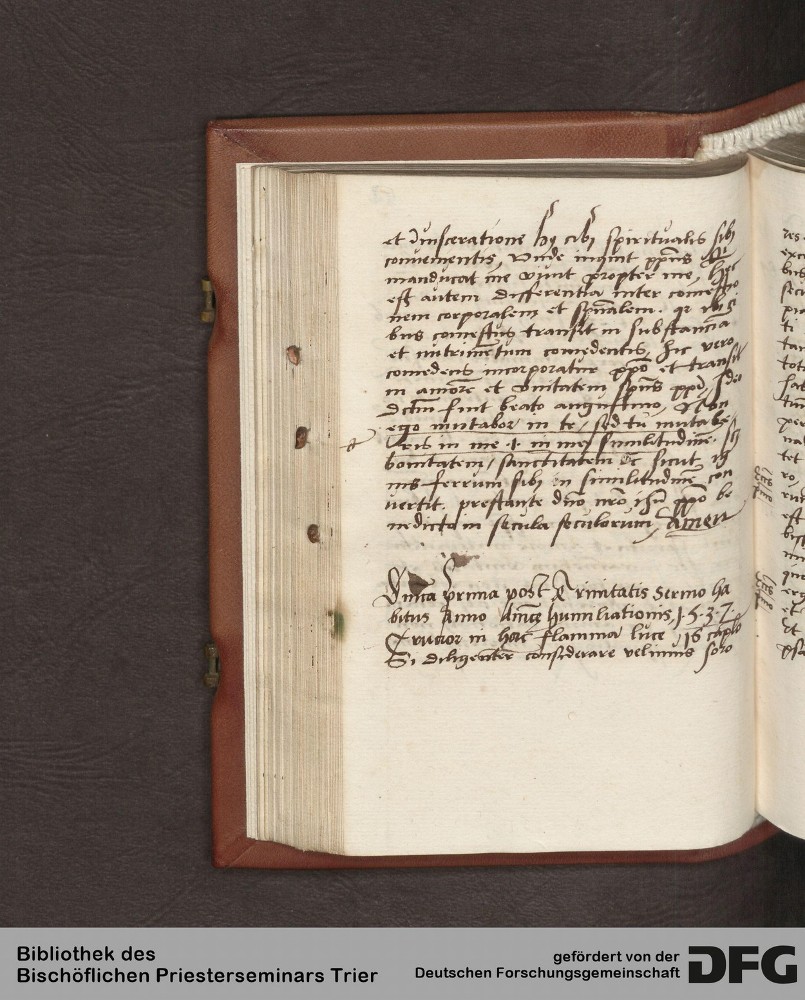 et viscerationē hui cibi spiritualis sibi
convenientis, Unde inquit
manducat me vivit propter me, hec
est autem differentia inter comestio
nem corporalem et spūalem. qr ibi ci
bus comestus transit in substantiā
et nutrimētum comedentis, hic vero
comedens incorporatur xpō et transit
in amore et unitatem spūs xpi, Ideo
dctm fuit beato augustino, Non
ego mutabor in te, sed tu mutabe
ris in me .i. in meā similitudinē.
bonitatem, sanctitatem &c sicut ig
nis ferrum sibi in similitudinē con
vertit. prestante dño nrō ihū xpō be
nedicto in secula seculorum, Amen
Dnica Prima post Trinitatis Sermo ha
bitus Anno Anne humiliationis, 1.5.3.7.
Crucior in hac flamma luce, 16 caplo
Si diligenter considerare velimus
Bibliothek des
Bischöflichen Priesterseminars Trier
gefördert von der
Deutschen Forschungsgemeinschaft
DFG